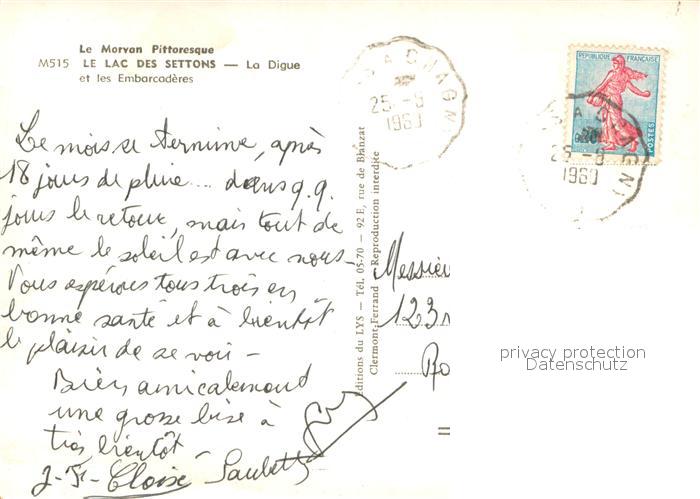 Le Morvan Pittoresque
M515 LE LAC DES SETTONS — La Digue
et les Embarcadères
Le mois se termine, après
18 jours de pluie... dans q.q.
jours le retour, mais tout de
même le soleil est avec nous -
Vous espérons tous trois en
bonne santé et à bientôt
le plaisir de se voir -
Bien amicalement
une grosse bise à
très bientôt -
J-F- Cloise
Editions du LYS — Tél. 05-70 — 92 E, rue de Blanzat
Clermont-Ferrand — Reproduction interdite
25 -8
1960
REPUBLIQUE FRANÇAISE
POSTES
25 -8
1960
Messieu
123
Ro
privacy protection
Datenschutz